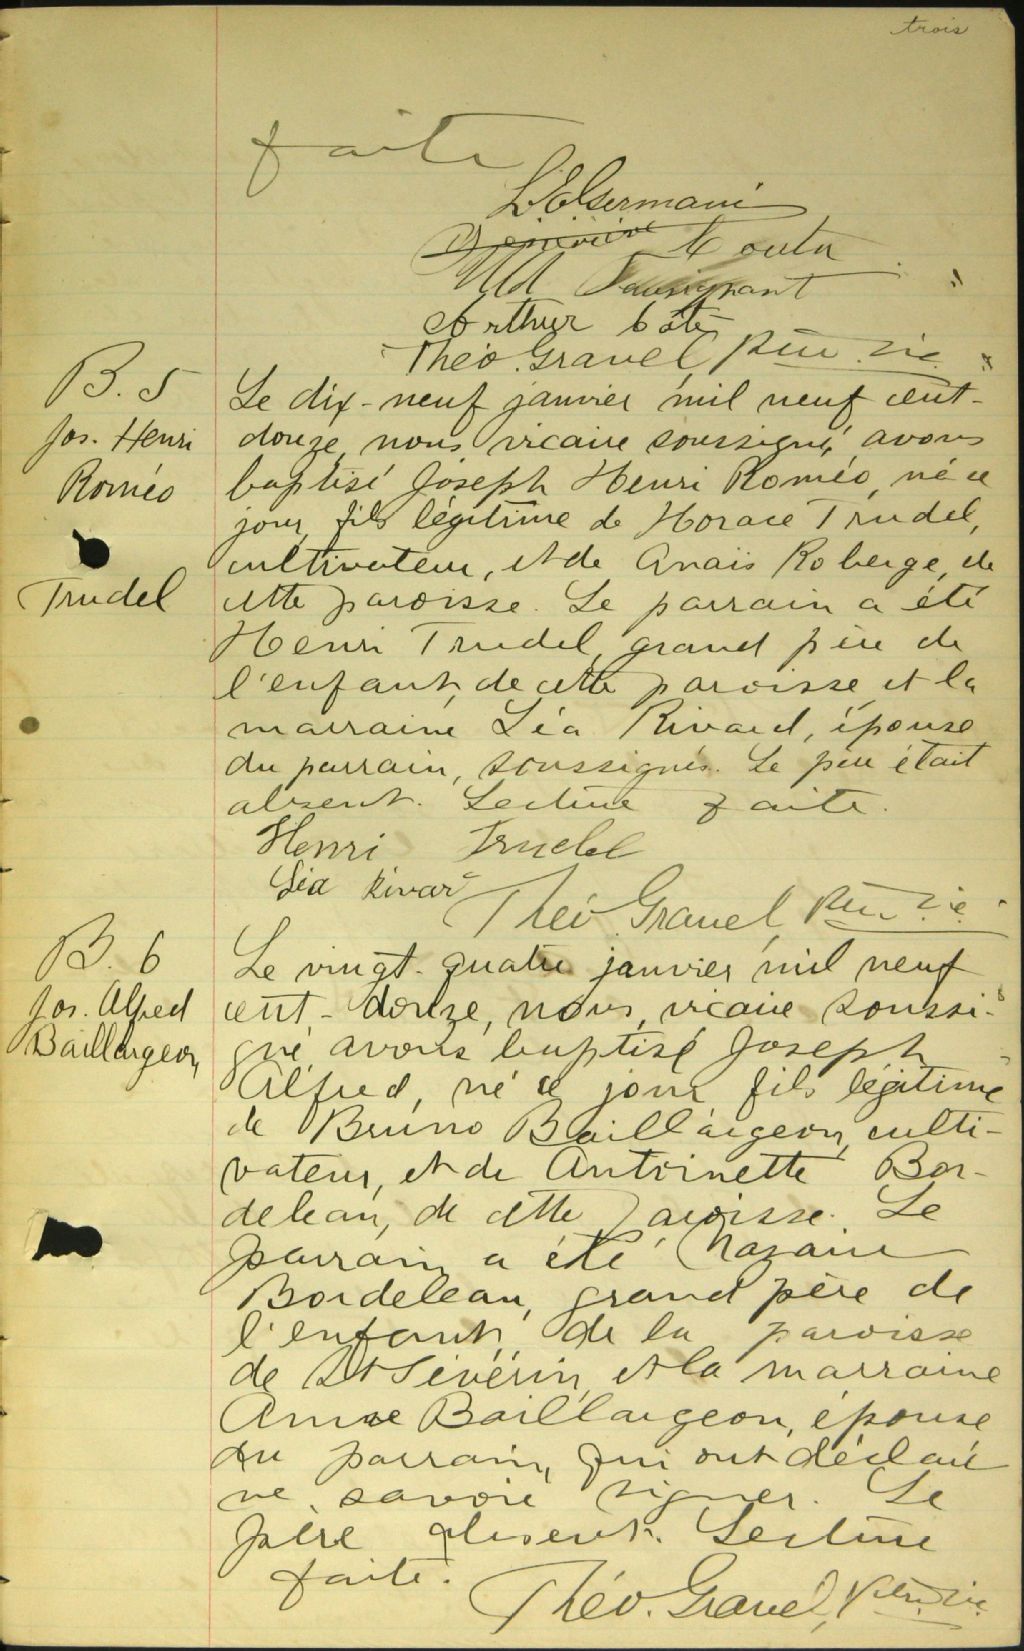 trois
faite
L. E. Germain
Couture
Arthur Côté
Théo. Gravel, Ptre. Vic.
B. 5
Jos. Henri
Roméo
Trudel
Le dix-neuf janvier mil neuf cent-
douze, nous vicaire soussigné, avons
baptisé Joseph Henri Roméo, né ce
jour, fils légitime de Horace Trudel,
cultivateur, et de Anaïs Roberge, de
cette paroisse. Le parrain a été
Henri Trudel, grand père de
l'enfant, de cette paroisse, et la
marraine Léa Rivard, épouse
du parrain, soussignés. Le père était
absent. Lecture faite.
Henri Trudel
Léa Rivard
Théo. Gravel, Ptre. Vic.
B. 6
Jos. Alfred
Baillargeon
Le vingt-quatre janvier mil neuf
cent-douze, nous, vicaire soussi-
gné avons baptisé Joseph
Alfred, né ce jour fils légitime
de Bruno Baillargeon, culti-
vateur, et de Antoinette Bor-
deleau, de cette paroisse. Le
parrain a été Nazaire
Bordeleau, grand père de
l'enfant, de la paroisse
de St Sévérin, et la marraine
Baillargeon, épouse
du parrain, qui ont déclaré
ne savoir signer. Le
père absent. Lecture
faite.
Théo. Gravel, Ptre. Vic.